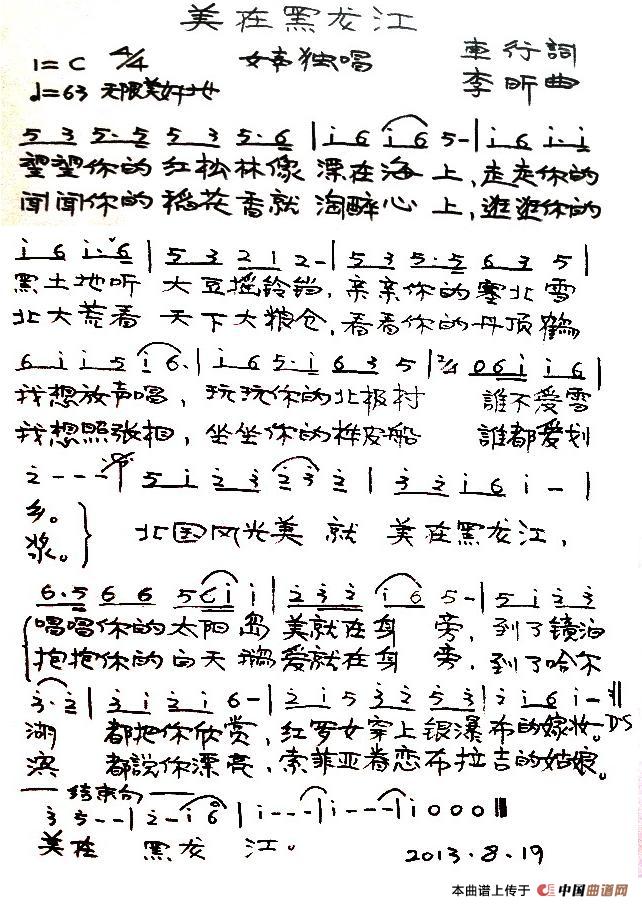 美在黑龙江
1=C 4/4 女声独唱 車行詞
♩=63 无限美好地 李昕曲
5 3 5·5 5 3 5·6 | i 6 i 6 5- | i 6 i·i
望望你的红松林像漂在海上,走走你的
闻闻你的稻花香就淘醉心上,逛逛你的
i 6 i·6 | 5 3 2 1 2- | 5 3 5·5 6 3 5 |
黑土地听大豆摇铃铛,亲亲你的塞北雪
北大荒看天下大粮仓,看看你的丹顶鹤
6 i i 5 i 6· | i 6 5·i 6 3 5 | 2/4 0 6 i i 6 |
我想放声唱,玩玩你的北极村 誰不爱雪
我想照张相,坐坐你的桦皮船 誰都爱划
2 - - - | 5 i 2 3 2 3 2 | 3 2 i 6 i - |
乡。
北国风光美就美在黑龙江,
浆。
6·5 6 6 5 6 i i | 2 3 2 i 6 5- | 5 i 2 3
唱唱你的太阳岛美就在身旁,到了镜泊
抱抱你的白天鹅爱就在身旁,到了哈尔
3·2 | 3 i 2 i 6- | 2 i 5 3 2 5 3 | 2 i 6 i- ‖
湖都把你欣赏,红罗女穿上银瀑布的嫁妆。DS
滨都説你漂亮,索菲亚眷恋布拉吉的姑娘。
结束句
3 5 - - | 2 - i 6 | i - - - | i - - - | i 0 0 0 ‖
美在黑龙江。
2013.8.19
本曲谱上传于 中国曲谱网